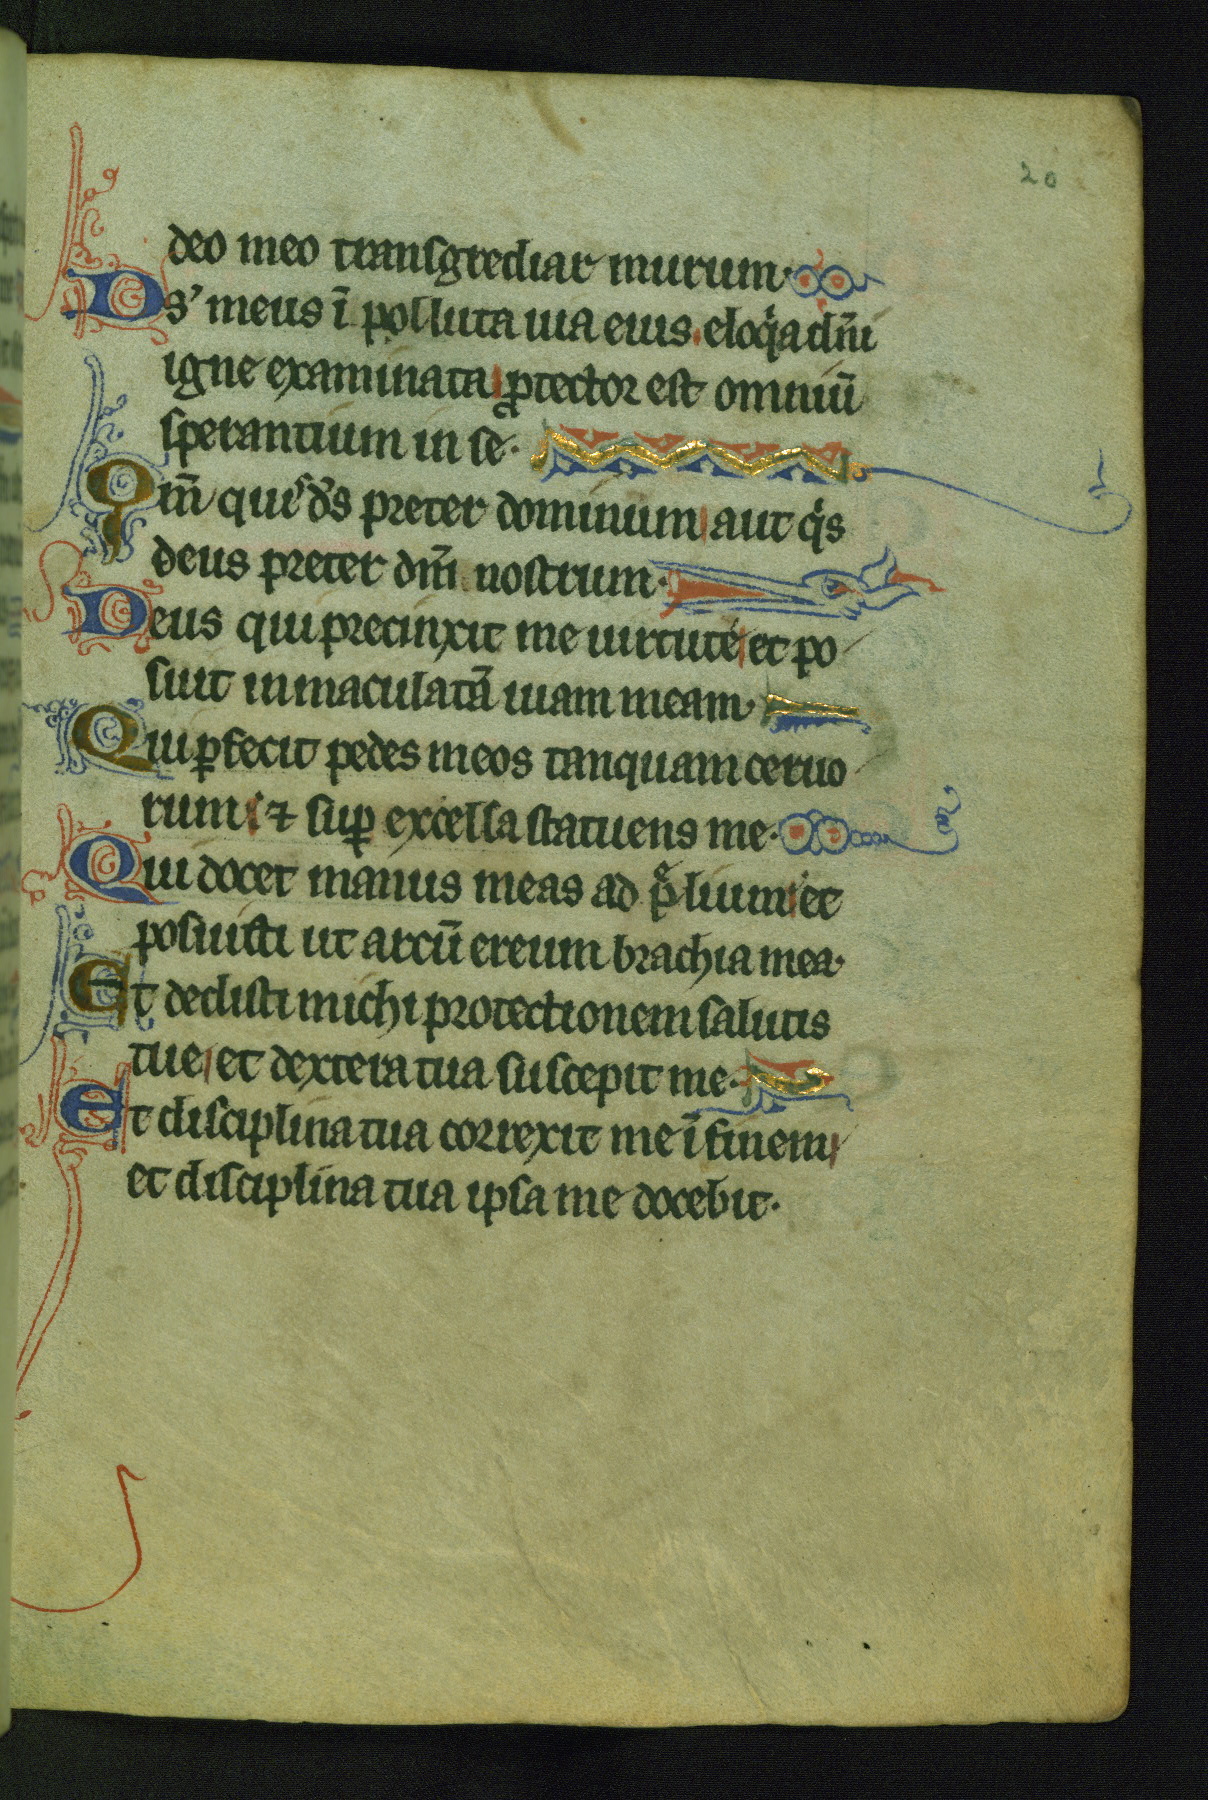 20
deo meo transgrediar murum·
Ds’ meus ī polluta uia eius. eloqͥa dn̄i
igne examinata ꝓtector est omniū
sperantium in se·
Qm̄ quis d̄s preter dominum aut qͥs
deus preter dm̄ nostrum·
Deus qui precinxit me uirtute et po
suit inmaculatā uiam meam·
Qui ꝑfecit pedes meos tanquam ceruo
rum ⁊ suꝑ excelsa statuens me·
Qui docet manus meas ad pͣlium et
posuisti ut arcū ereum brachia mea·
Et dedisti michi protectionem salutis
tue et dextera tua suscepit me·
Et disciplina tua correxit me ī finem
et disciplina tua ipsa me docebit·